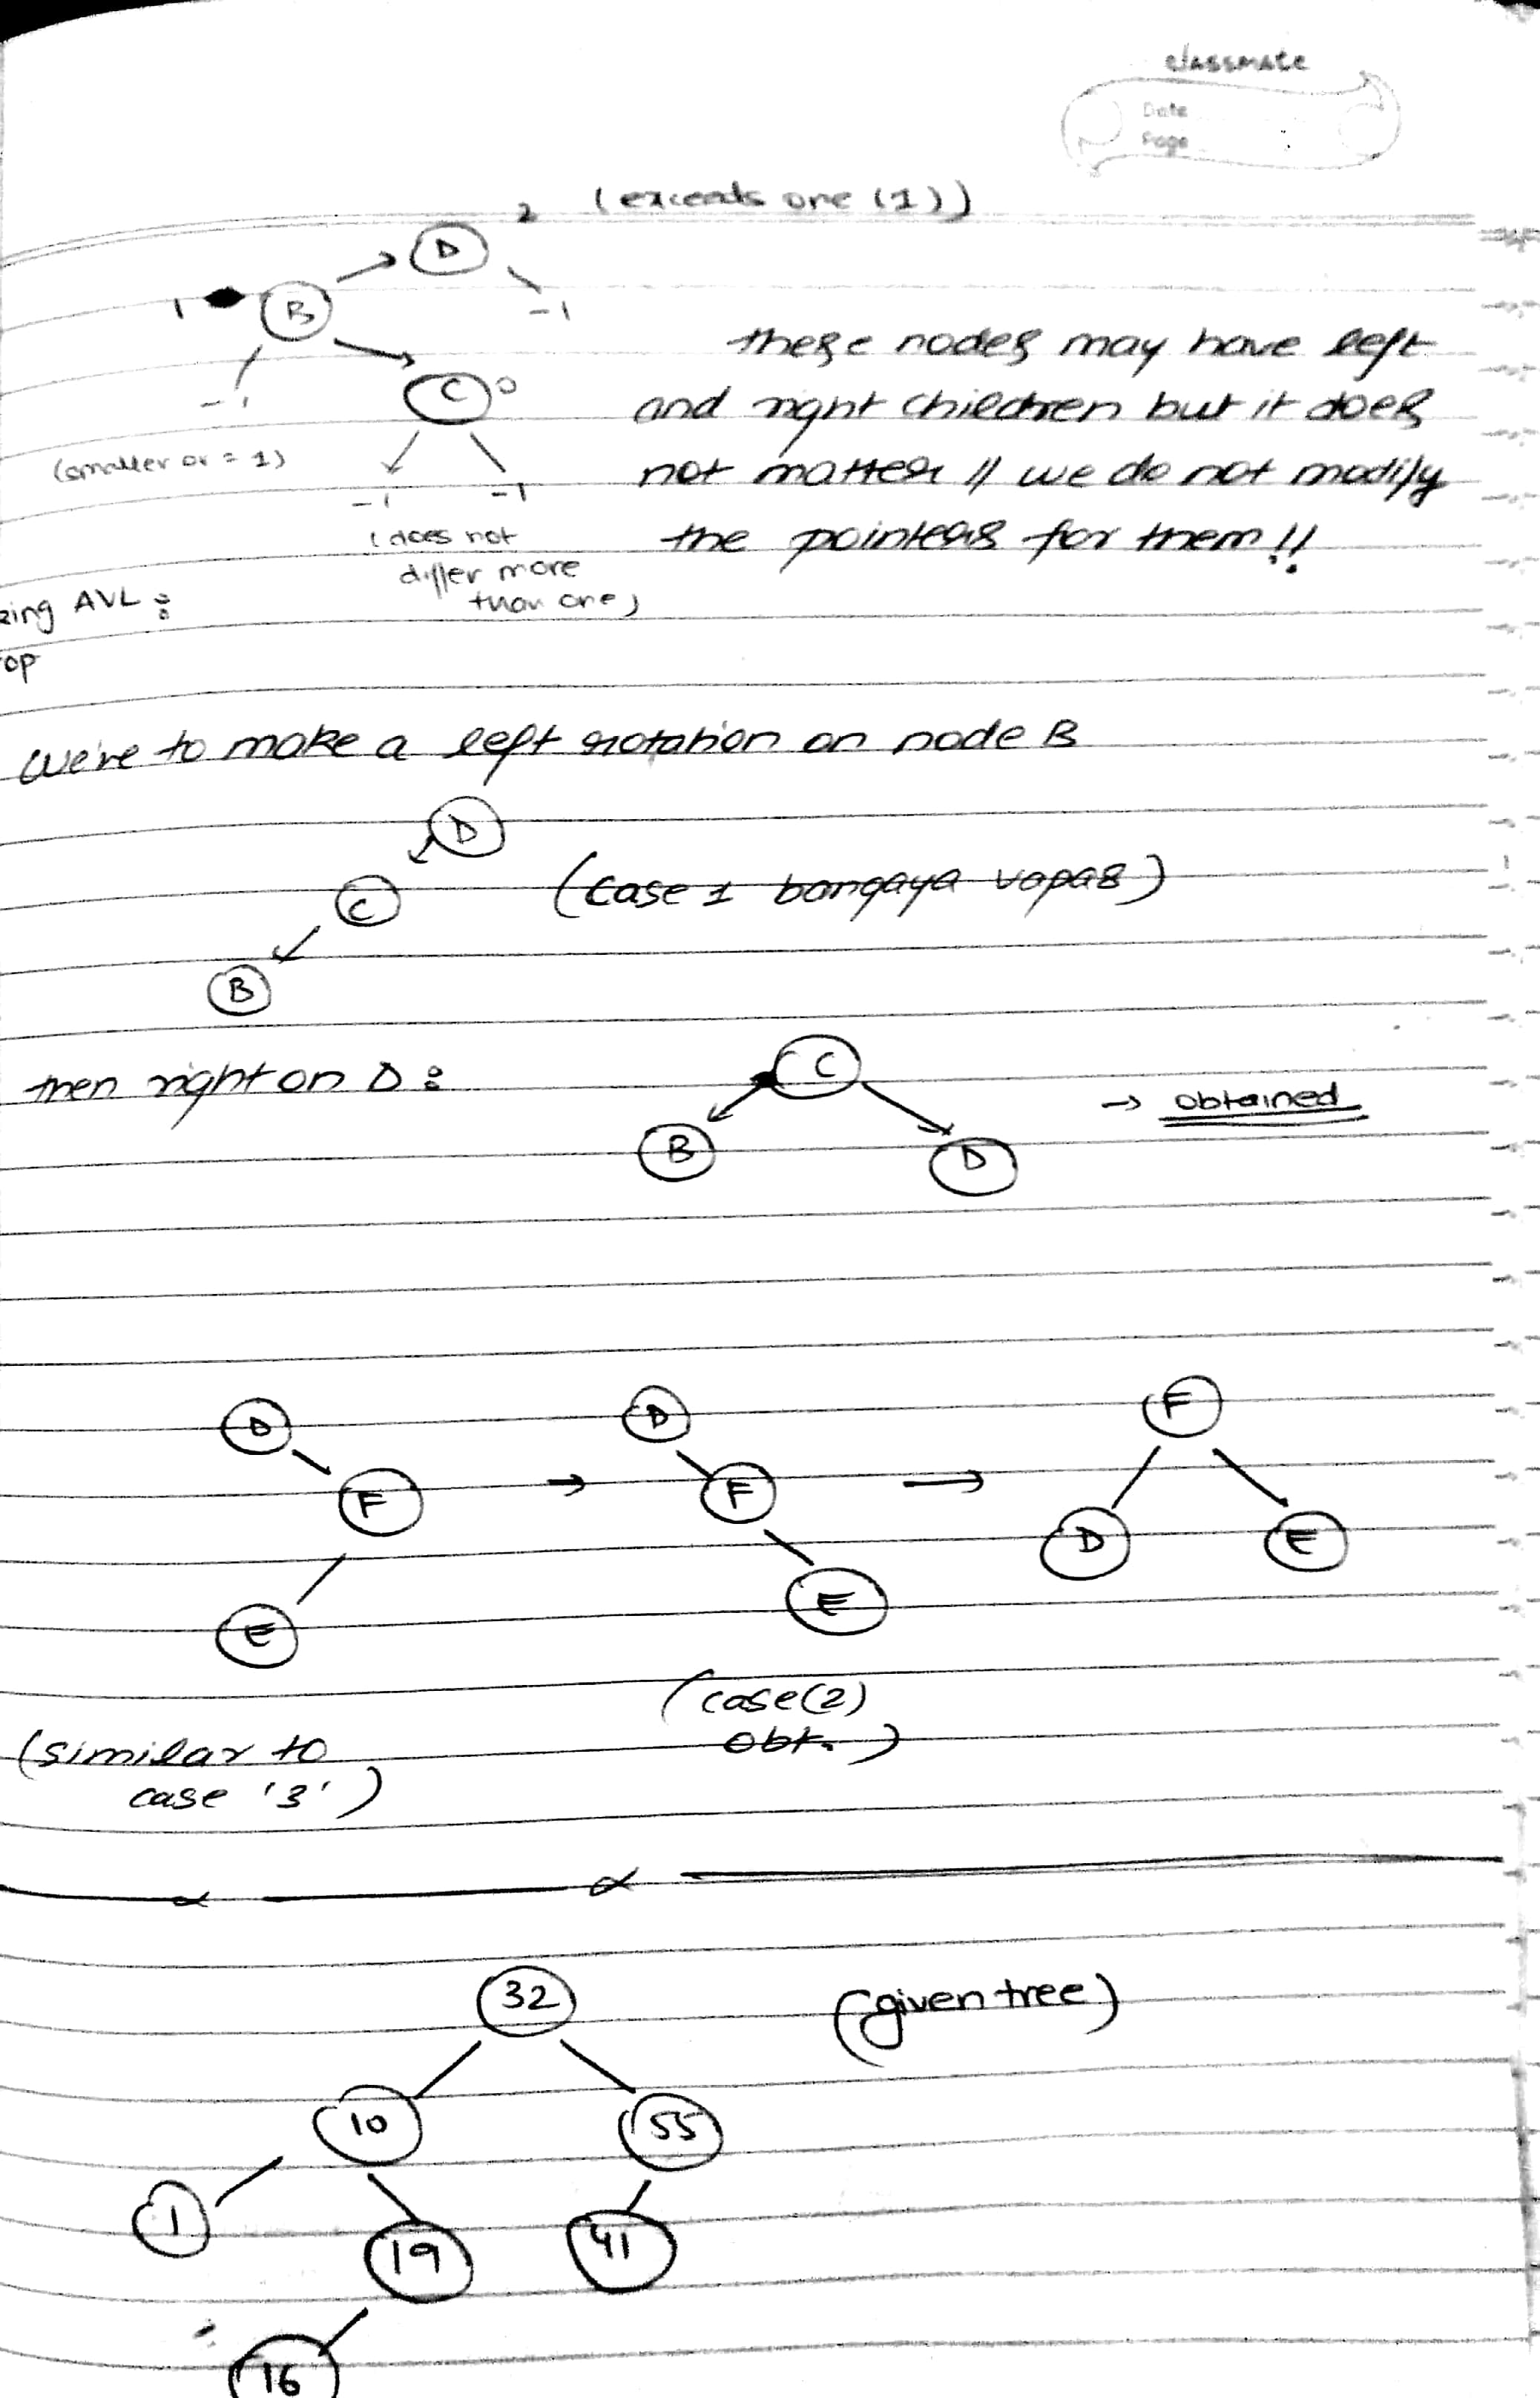 classmate
Date
Page
2 (exceeds one (1))
D
1 B -1
-1 C 0
(smaller or = 1)
-1 -1
(does not
differ more
than one)
these nodes may have left
and right children but it does
not matter // we do not modify
the pointers for them !!
zing AVL :
op
We're to make a left rotation on node B
D
C (case 1 bangaya vapas)
B
then right on D :
C
B D → obtained
D D F
F → F → D E
E E
(similar to
case '3')
(case(2)
obt.)
32 (given tree)
10 55
1 19 41
16